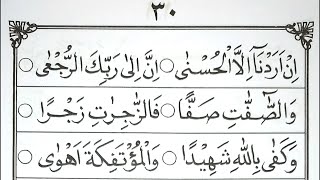 ٣٠
اِنْ اَرَدْنَآ اِلَّا الْحُسْنٰى ○ اِنَّ اِلٰى رَبِّكَ الرُّجْعٰى ○
وَالصّٰٓفّٰتِ صَفًّا ○ فَالزّٰجِرٰتِ زَجْرًا ○
وَكَفٰى بِاللّٰهِ شَهِيْدًا ○ وَالْمُؤْتَفِكَةَ اَهْوٰى ○